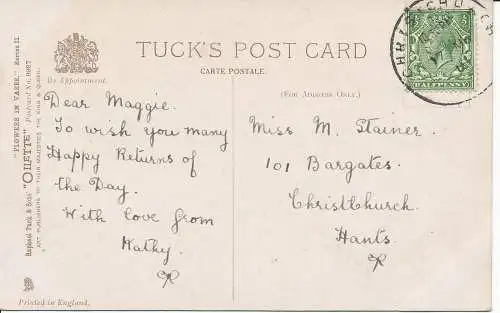 TUCK'S POST CARD
CARTE POSTALE.
By Appointment.
(For Address Only.)
"FLOWERS IN VASES." Series II.
Raphael Tuck & Sons' "OILETTE" Postcard No. 8667
ART PUBLISHERS TO THEIR MAJESTIES THE KING & QUEEN.
Printed in England.
HALFPENNY
Dear Maggie.
To wish you many
Happy Returns of
the Day.
With love from
Kathy.
Miss M. Stainer.
101 Bargates.
Christchurch.
Hants.